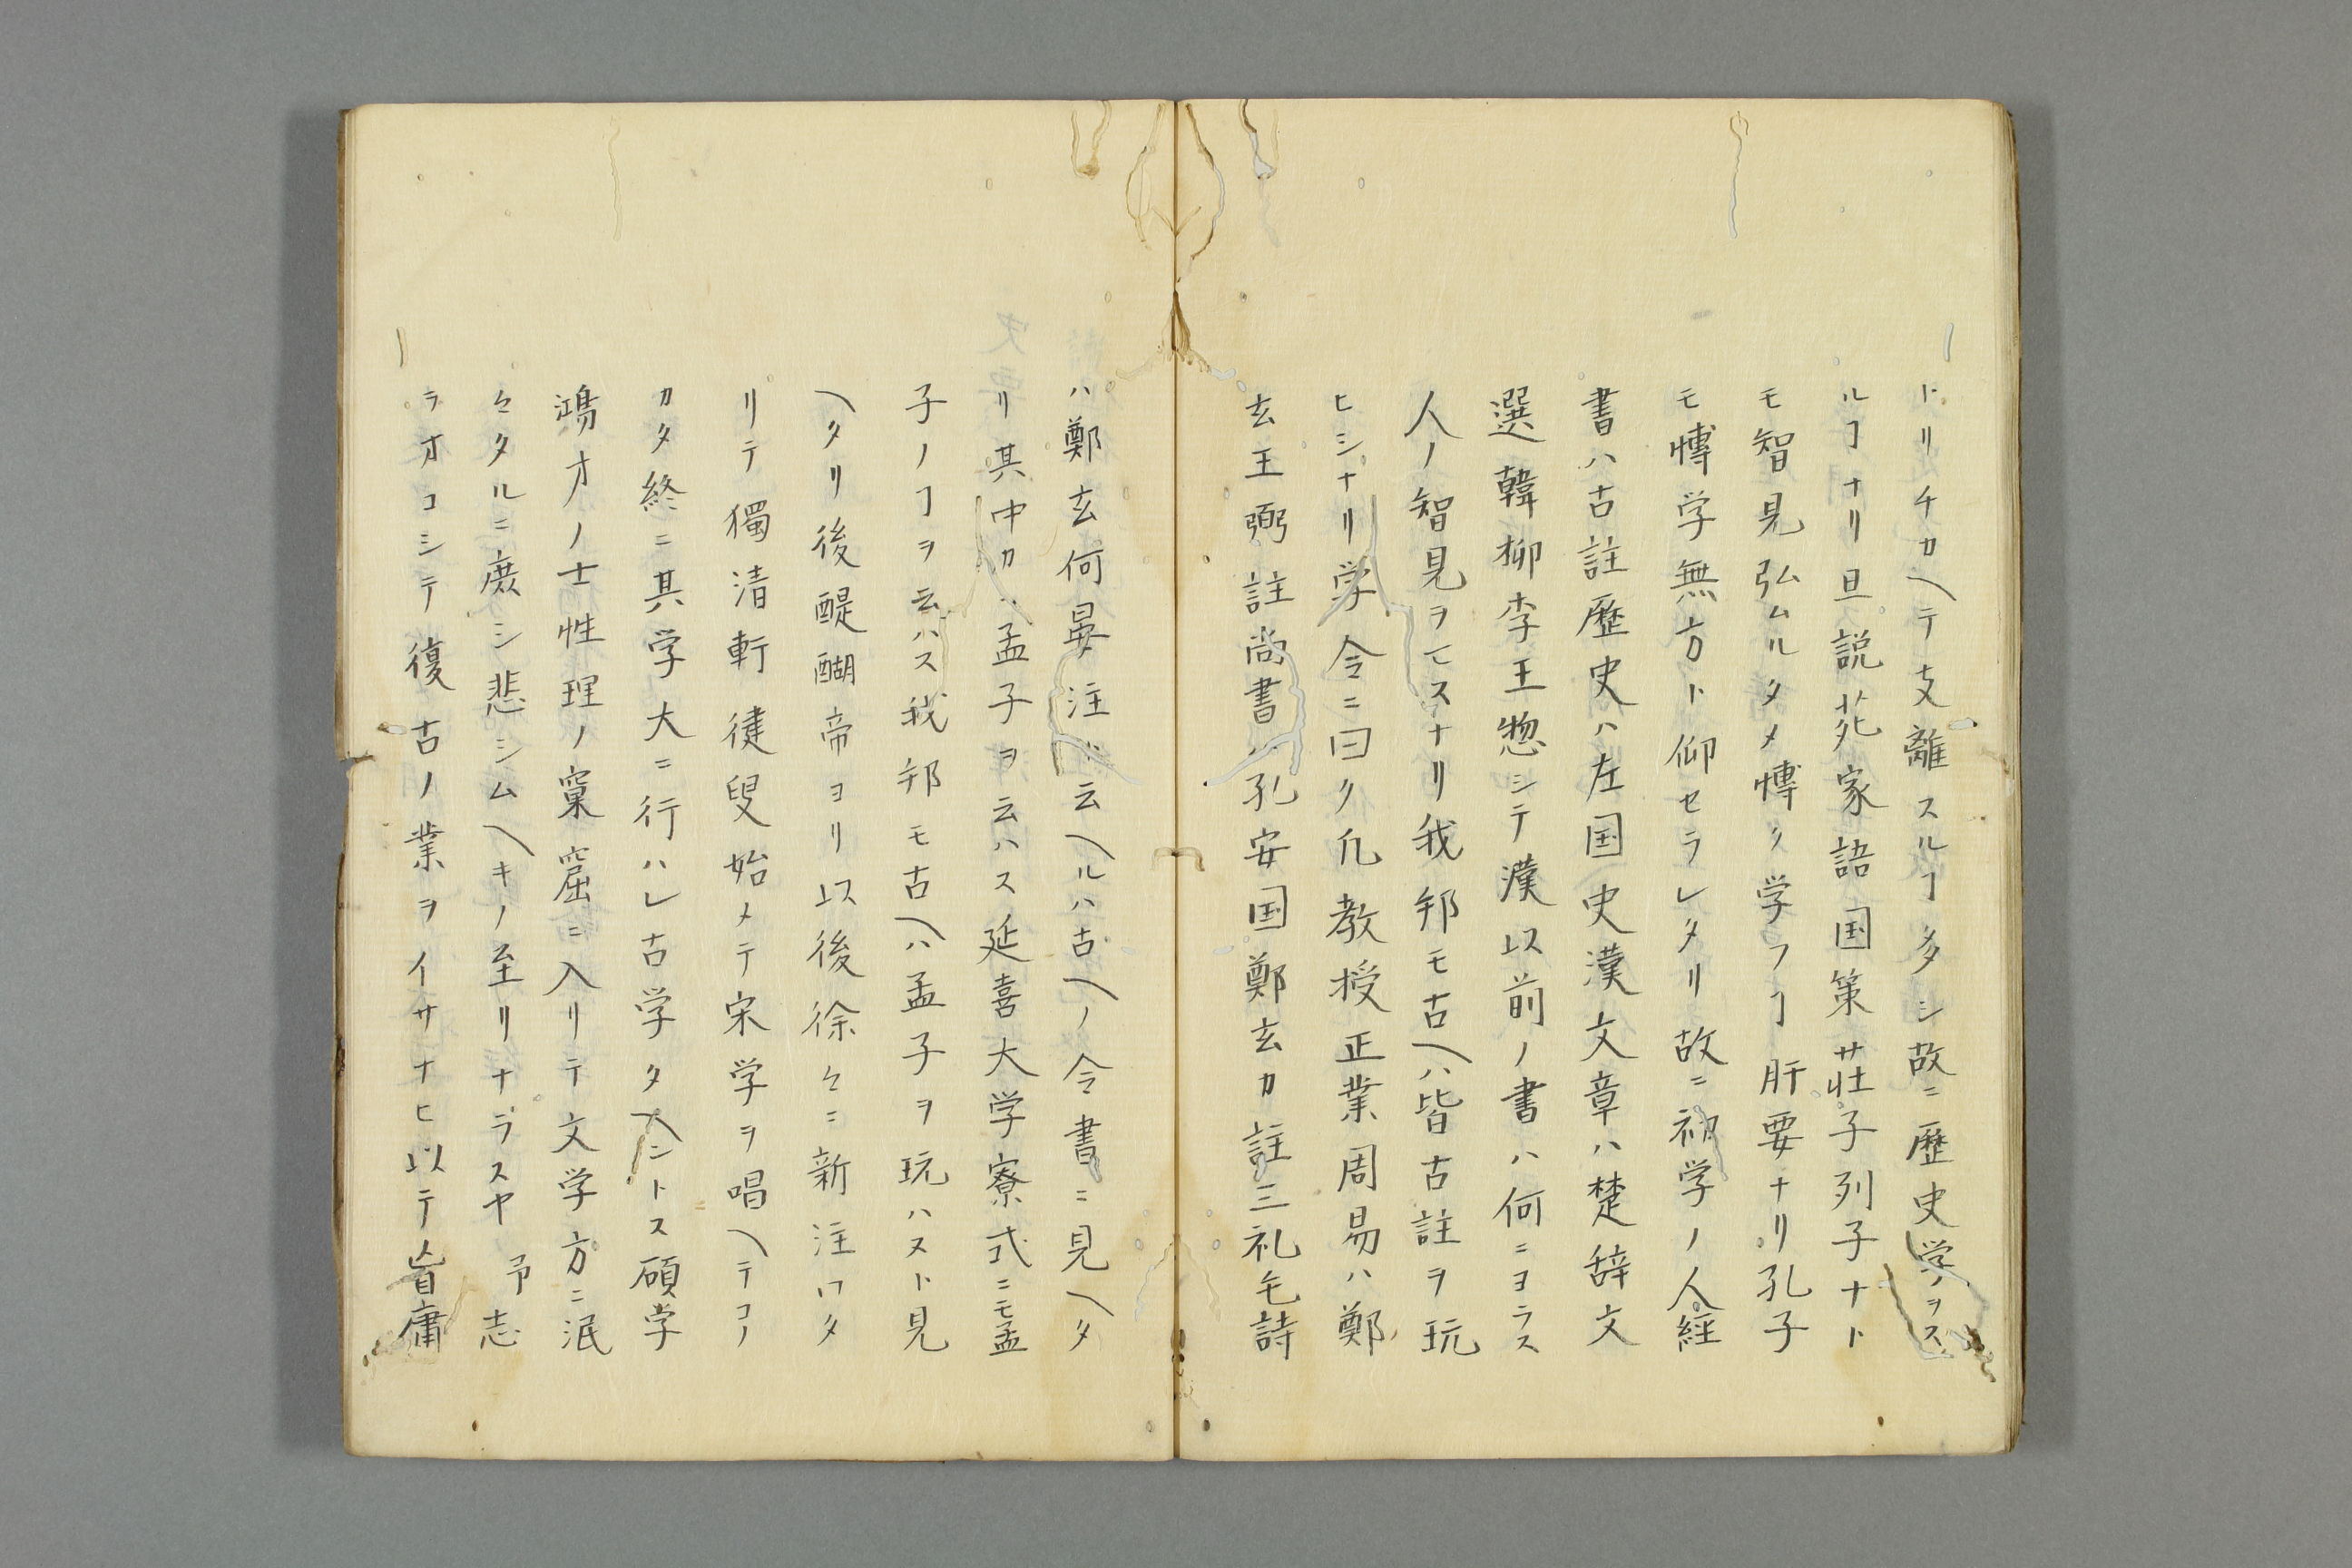 トリチカヘテ支離スルヿ多シ故ニ歴史学ヲス
ルヿナリ且説苑家語国策荘子列子ナト
モ智見弘ムルタメ博ク学フヿ肝要ナリ孔子
モ博学無方ト仰セラレタリ故ニ初学ノ人経
書ハ古註歴史ハ左国史漢文章ハ楚辞文
選韓柳李王惣シテ漢以前ノ書ハ何ニヨラス
人ノ智見ヲマスナリ我邦モ古ヘハ皆古註ヲ玩
ヒシナリ学令ニ曰ク凡教授正業周易ハ鄭
玄王弼註尚書ハ孔安国鄭玄カ註三礼毛詩
ハ鄭玄何晏注ト云ヘルハ古ヘノ令書ニ見ヘタ
リ其中カニ孟子ヲ云ハス延喜大学寮式ニモ孟
子ノヿヲ云ハス我邦モ古ヘハ孟子ヲ玩ハスト見
ヘタリ後醍醐帝ヨリ以後徐々ニ新注ワタ
リテ獨清軒健叟始メテ宋学ヲ唱ヘテコノ
カタ終ニ其学大ニ行ハレ古学タヘントス碩学
鴻才ノ士性理ノ窠窟ニ入リテ文学方ニ泯
々タルニ庶シ悲シムヘキノ至リナラスヤ 予志
ラオコシテ復古ノ業ヲイサナヒ以テ盲庸